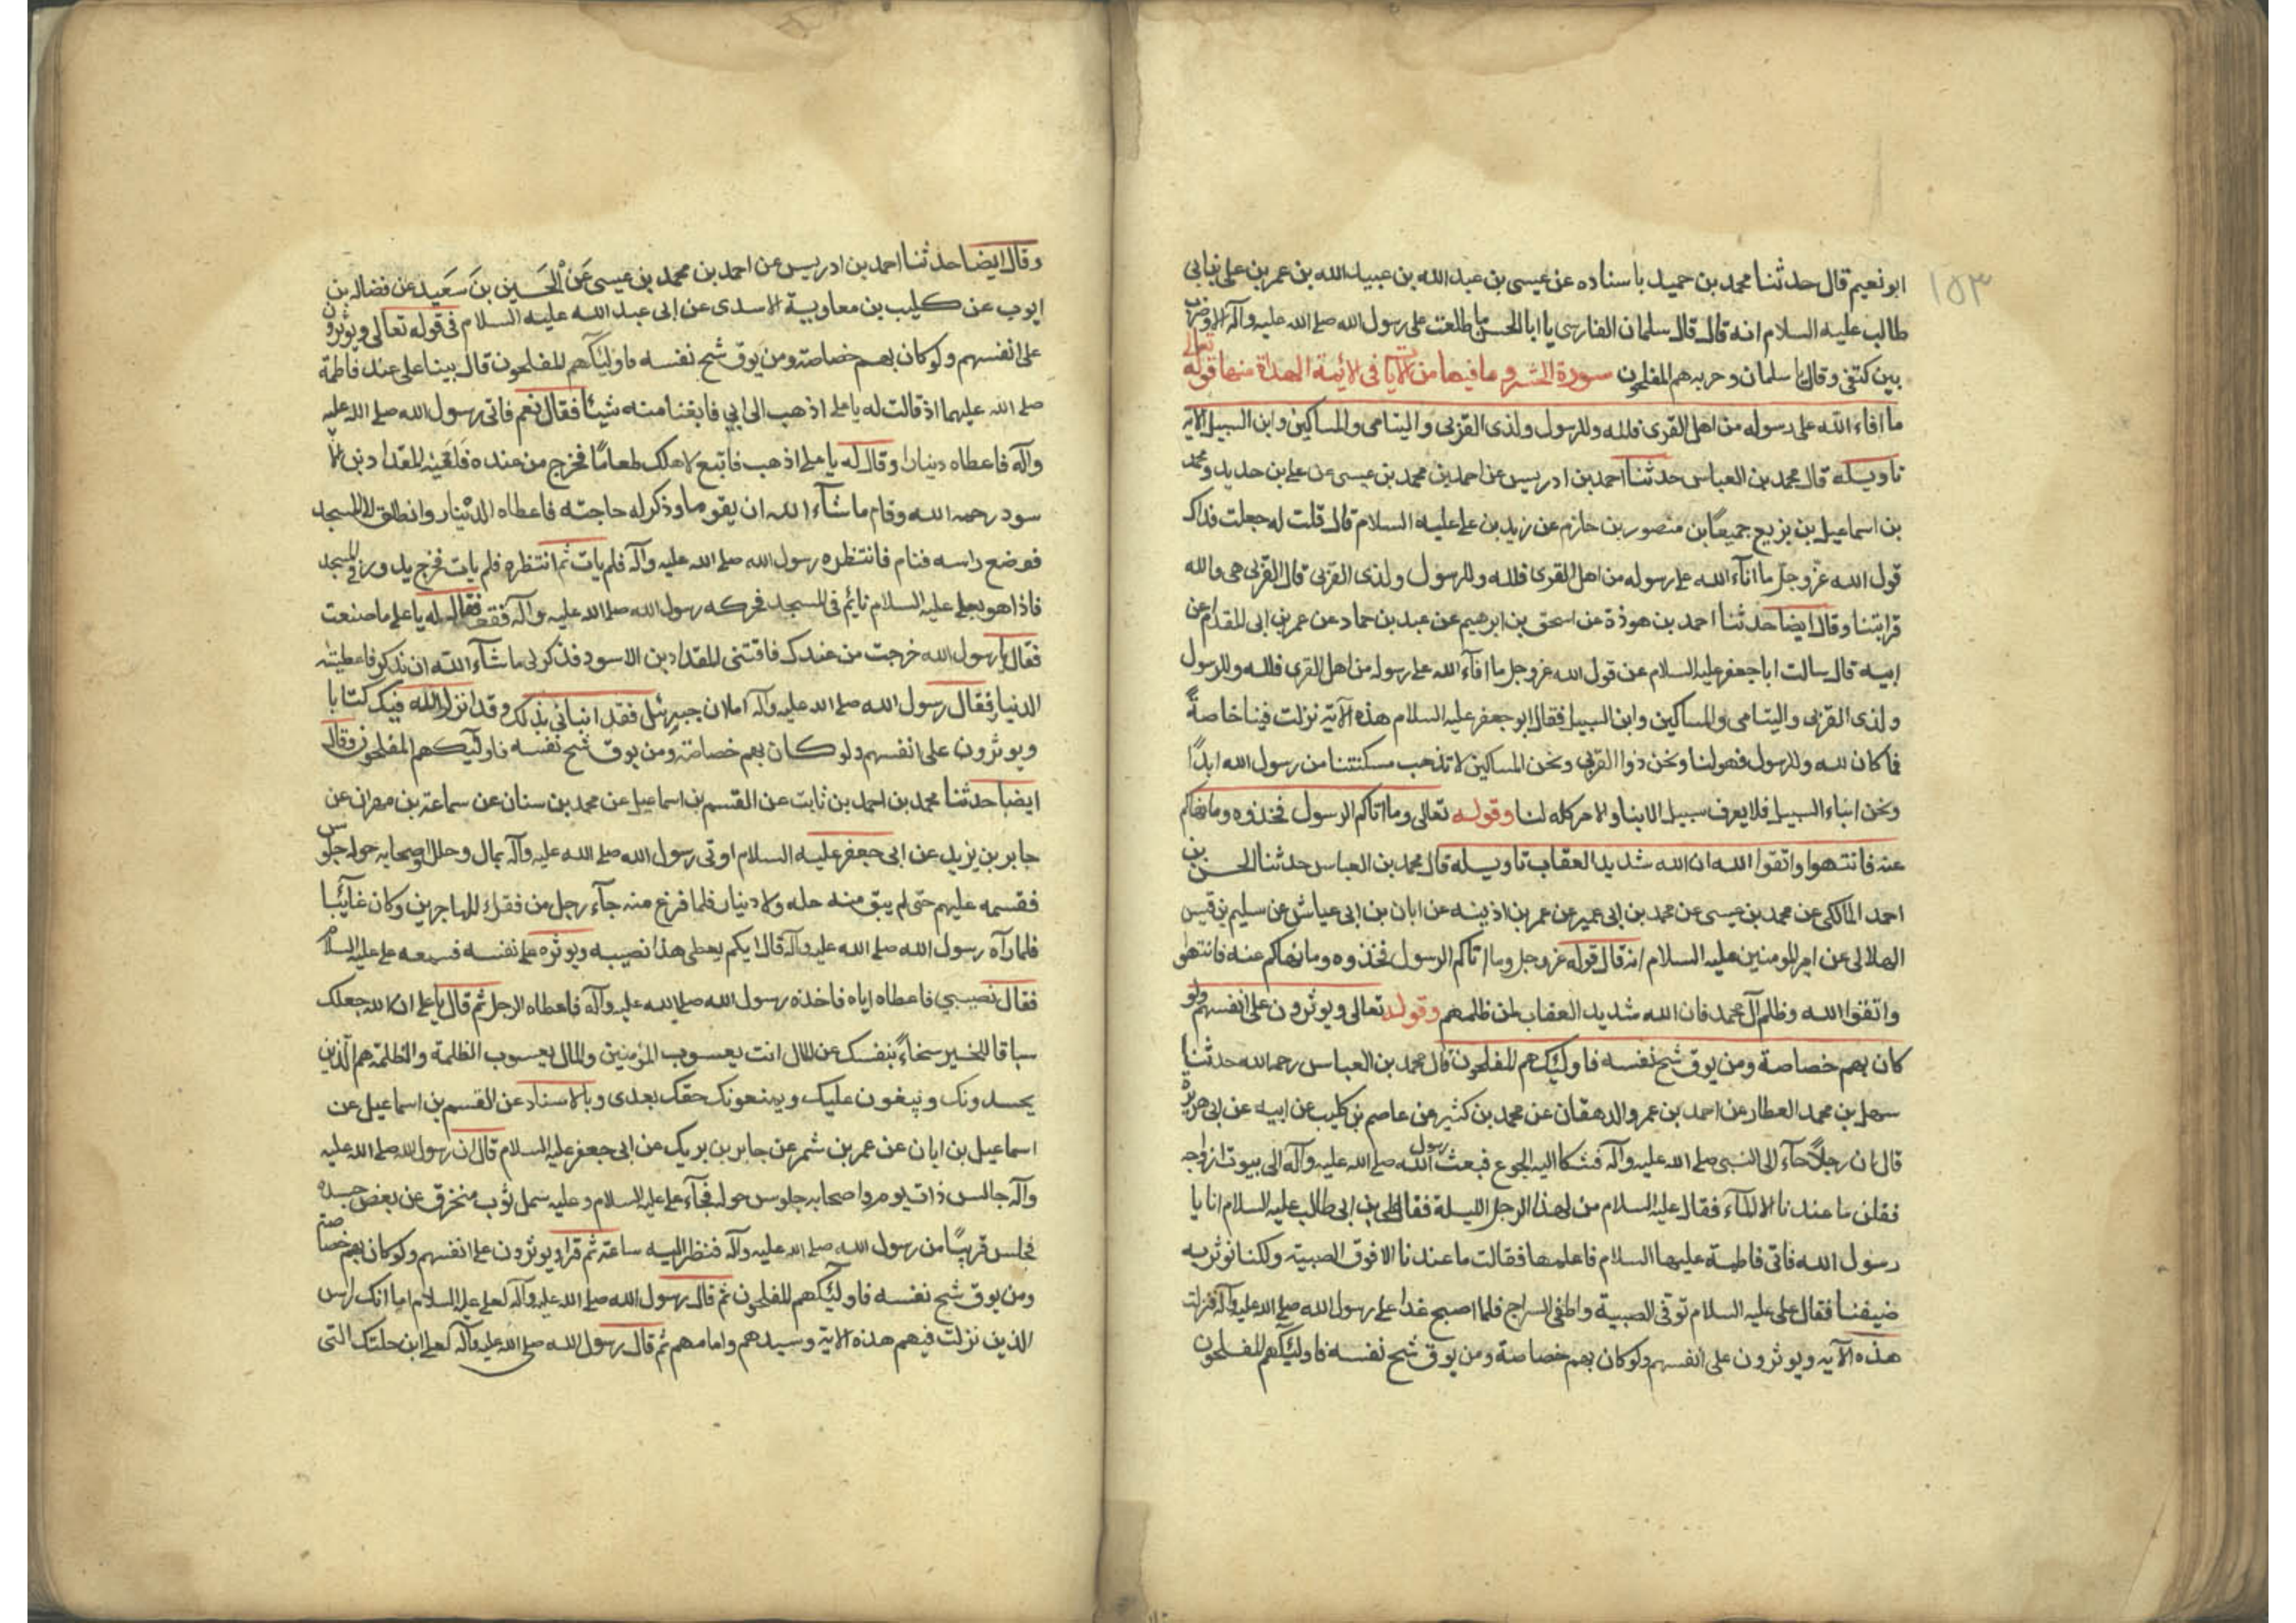 ١٥٣
ابو نعيم قال حدثنا محمد بن حميد باسناده عن عيسى بن عبد الله بن عبيد الله بن عمر بن على بن ابى
طالب عليه السلام انه قال قال سلمان الفارسى يا ابا الحسن ما طلعت على رسول الله صلى الله عليه وآله الا وضرب
بين كتفى وقال يا سلمان و حزبه هم المفلحون سورة الحشر و ما فيها من الآيات فى الائمة الهداة منها قوله تعالى
ما افاء الله على رسوله من اهل القرى فلله وللرسول ولذى القربى واليتامى والمساكين وابن السبيل الآية
تاويله قال محمد بن العباس حدثنا احمد بن ادريس عن احمد بن محمد بن عيسى عن على بن حديد و محمد
بن اسماعيل بن بزيع جميعًا بن منصور بن حازم عن زيد بن على عليه السلام قال قلت له جعلت فداك
قول الله عز وجل ما افآء الله على رسوله من اهل القرى فلله وللرسول ولذى القربى قال القربى هى والله
قرابتنا وقال ايضا حدثنا احمد بن هوذة عن اسحق بن ابرهيم عن عبد بن حماد عن عمر بن ابى المقدام عن
ابيه قال سالت ابا جعفر عليه السلام عن قول الله عز وجل ما افآء الله على رسوله من اهل القرى فلله وللرسول
ولذى القربى واليتامى والمساكين وابن السبيل فقال ابو جعفر عليه السلام هذه الآية نزلت فينا خاصةً
فما كان لله وللرسول فهو لنا ونحن ذوا القربى ونحن المساكين لا تذهب مسكنتنا من رسول الله ابدًا
ونحن ابناء السبيل فلا يعرف سبيل الا بنا والامر كله لنا وقوله تعالى وما اتاكم الرسول فخذوه وما نهاكم
عنه فانتهوا واتقوا الله ان الله شديد العقاب تاويله قال محمد بن العباس حدثنا الحسن بن
احمد المالكى عن محمد بن عيسى عن محمد بن ابى عمير عن عمر بن اذينه عن ابان بن ابى عياش عن سليم بن قيس
الهلالى عن امير المومنين عليه السلام انه قال قوله عز وجل وما اتاكم الرسول فخذوه وما نهاكم عنه فانتهوا
واتقوا الله وظلم آل محمد فان الله شديد العقاب لمن ظلمهم وقوله تعالى ويوثرون على انفسهم ولو
كان بهم خصاصة ومن يوق شح نفسه فاولئك هم المفلحون قال محمد بن العباس رحمه الله حدثنا
سهل بن محمد العطار عن احمد بن عمر والدهقان عن محمد بن كثير عن عاصم بن كليب عن ابيه عن ابى هريرة
قال ان رجلاً جآء الى النبى صلى الله عليه وآله فشكا اليه الجوع فبعث رسول الله صلى الله عليه وآله الى بيوت ازواجه
فقلن ما عندنا الا المآء فقال عليه السلام من لهذا الرجل الليلة فقال على بن ابى طالب عليه السلام انا يا
رسول الله فاتى فاطمة عليها السلام فاعلمها فقالت ما عندنا الا قوت الصبية ولكنا نوثر به
ضيفنا فقال على عليه السلام نومى الصبية واطفى السراج فلما اصبح غدا على رسول الله صلى الله عليه وآله فنزلت
هذه الآيه ويوثرون على انفسهم ولو كان بهم خصاصة ومن يوق شح نفسه فاولئك هم المفلحون
وقال ايضا حدثنا احمد بن ادريس عن احمد بن محمد بن عيسى عَن الحَسَين بن سَعَيد عن فضاله بن
ايوب عن كليب بن معاوية الاسدى عن ابى عبد الله عليه السلام فى قوله تعالى ويوثرون
على انفسهم ولو كان بهم خصاصة ومن يوق شح نفسه فاولئك هم المفلحون قال بينا على عند فاطمة
صلى الله عليهما اذ قالت له يا على اذهب الى ابى فابغنا منه شيئًا فقال نعم فاتى رسول الله صلى الله عليه
وآله فاعطاه دينارا وقال له يا على اذهب فابتع لاهلك طعامًا فخرج من عنده فلقيه المقداد بن الا
سود رحمه الله وقام ما شآء الله ان يقوما وذكر له حاجته فاعطاه الدينار وانطلق الى المسجد
فوضع راسه فنام فانتظره رسول الله صلى الله عليه وآله فلم يات ثم انتظره فلم يات فخرج يدور فى المسجد
فاذا هو بعلى عليه السلام نائم فى المسجد فحركه رسول الله صلى الله عليه وآله فقعد فقال له يا على ما صنعت
فقال يا رسول الله خرجت من عندك فلقتنى المقداد بن الاسود فذكر لى ما شآء الله ان يذكر فاعطيته
الدنيار فقال رسول الله صلى الله عليه وآله اما ان جبرئل فقد انبانى بذلك وقد انزل الله فيك كتابا
ويوثرون على انفسهم ولو كان بهم خصاصة ومن يوق شح نفسه فاولئك هم المفلحون وقال
ايضا حدثنا محمد بن احمد بن ثابت عن القسم بن اسماعيل عن محمد بن سنان عن سماعة بن مهران عن
جابر بن يزيد عن ابى جعفر عليه السلام اوتى رسول الله صلى الله عليه وآله بمال وحلل واصحابه حوله جلوس
فقسمه عليهم حتى لم يبق منه حله ولا دينار فلما فرغ منه جآء رجل من فقراء المهاجرين وكان غآئبا
فلما رآه رسول الله صلى الله عليه وآله قال ايكم يعطى هذا نصيبه ويوثره على نفسه فسمعه على عليه السلام
فقال نصيبي فاعطاه اياه فاخذه رسول الله صلى الله عليه وآله فاعطاه الرجل ثم قال يا على ان الله جعلك
سباقا للخير سخاءً بنفسك عن المال انت يعسوب المؤمنين والمال يعسوب الظلمة والظلمة هم الذين
يحسدونك ويبغون عليك ويمنعونك حقك بعدى وبالاسناد عن القسم بن اسماعيل عن
اسماعيل بن ابان عن عمر بن شمر عن جابر بن يريك عن ابى جعفر عليه السلام قال ان رسول الله صلى الله عليه
وآله جالس ذات يوم واصحابه جلوس حوله فجآء على عليه السلام وعليه سمل ثوب منخرق عن بعض جسده
فجلس قريبًا من رسول الله صلى الله عليه وآله فنظر اليه ساعة ثم قرا ويوثرون على انفسهم ولو كان بهم خصاصة
ومن يوق شح نفسه فاولئك هم المفلحون ثم قال رسول الله صلى الله عليه وآله لعلى عليه السلام اما انك راس
الذين نزلت فيهم هذه الآية وسيدهم وامامهم ثم قال رسول الله صلى الله عليه وآله لعلى اين حلتك التى